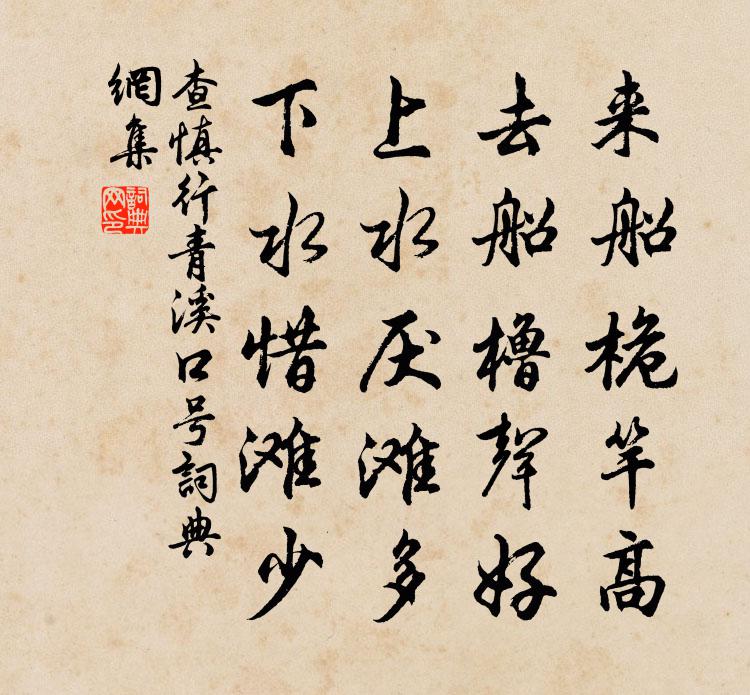 来船桅竿高
去船橹聲好
上水厌滩多
下水惜滩少
查慎行青溪口号詞典
網集
詞典網印